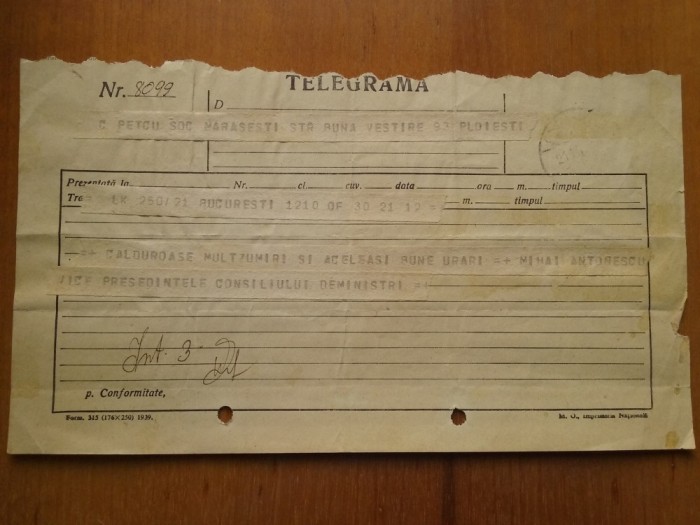 TELEGRAMA
Nr. 8099
D
C PETCU SOC MARASESTI STR BUNA VESTIRE 93 PLOIESTI
Prezentată la Nr. cl. cuv. data ora m. timpul
Tra = LK 250/21 BUCURESTI 1210 OF 30 21 12 = m. timpul
=+ CALDUROASE MULTZUMIRI SI ACELEASI BUNE URARI =+ MIHAI ANTONESCU
VICE PRESEDINTELE CONSILIULUI DEMINISTRI =+
Int. 3
p. Conformitate,
Form. 345 (176×250) 1939. M. O., Imprimeria Națională